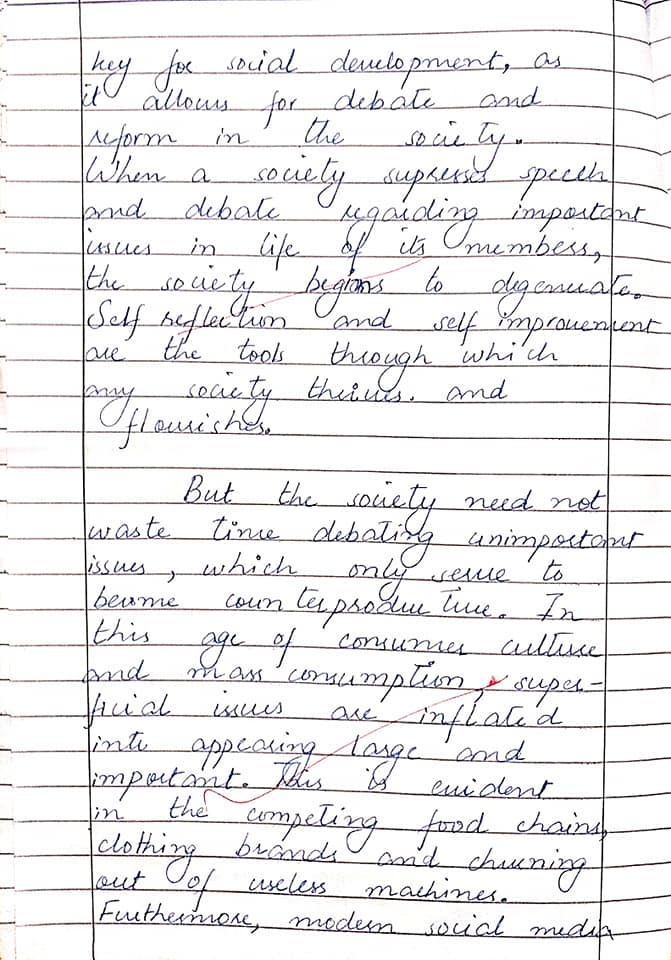 key for social development, as
it allows for debate and
reform in the society.
When a society supresses speech
and debate regarding important
issues in life of its members,
the society begins to degenerate.
Self reflection and self improvement
are the tools through which
any society thrives. and
flourishes.
But the society need not
waste time debating unimportant
issues, which only serve to
become counterproductive. In
this age of consumer culture
and mass consumption, super-
ficial issues are inflated
into appearing large and
important. This is evident
in the competing food chains,
clothing brands and churning
out of useless machines.
Furthermore, modern social media